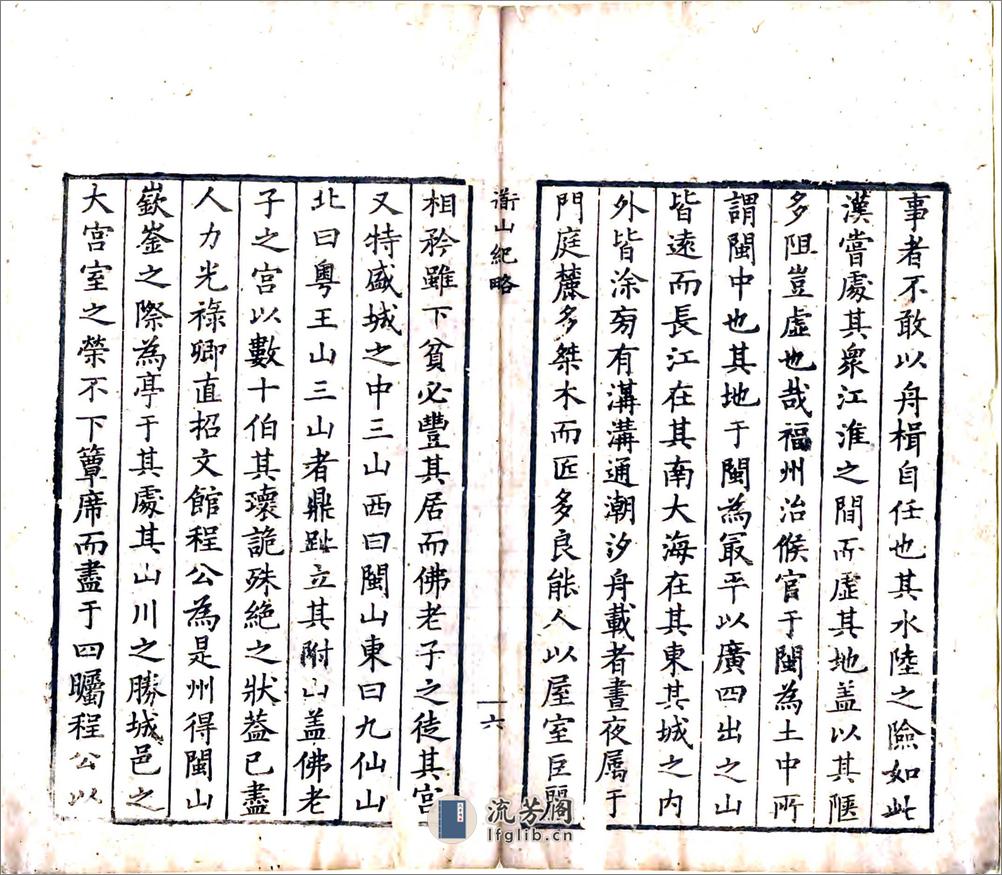 事者不敢以舟楫自任也其水陸之險如此
漢嘗處其衆江淮之間而虛其地盖以其陿
多阻豈虛也哉福州治候官于閩為土中所
謂閩中也其地于閩為冣平以廣四出之山
皆遠而長江在其南大海在其東其城之内
外皆涂旁有溝溝通潮汐舟載者晝夜属于
門庭麓多桀木而匠多良能人以屋室巨麗
衜山紀略
六
相矜雖下貧必豐其居而佛老子之徒其宮
又特盛城之中三山西曰閩山東曰九仙山
北曰粤王山三山者鼎趾立其附山盖佛老
子之宮以數十伯其瓌詭殊絶之狀葢已盡
人力光祿卿直招文館程公為是州得閩山
嶔崟之際為亭于其處其山川之勝城邑之
大宮室之榮不下簟席而盡于四矚程公以
流芳阁
lfglib.cn